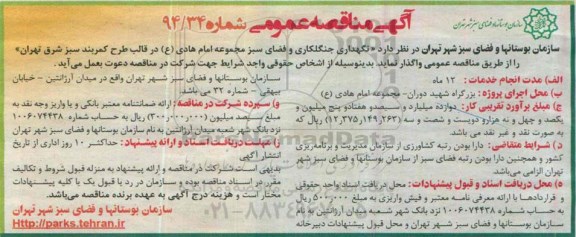 آگهی مناقصه عمومی شماره ۹۴/۳۴
سازمان بوستانها و فضای سبز شهر تهران
سازمان بوستانها و فضای سبز شهر تهران در نظر دارد « نگهداری جنگلکاری و فضای سبز مجموعه امام هادی (ع) در قالب طرح کمربند سبز شرق تهران»
را از طریق مناقصه عمومی واگذار نماید. بدینوسیله از اشخاص حقوقی واجد شرایط جهت شرکت در مناقصه دعوت بعمل می‌آید.
الف) مدت انجام خدمات : ۱۲ ماه
ب) محل اجرای پروژه : بزرگراه شهید دوران- مجموعه امام هادی (ع)
ج) مبلغ برآورد تقریبی کار: دوازده میلیارد و سیصدو هفتادو پنج میلیون و
یکصد و چهل و نه هزارو دویست و شصت و سه (۱۲,۳۷۵,۱۴۹,۲۶۳) ریال می باشد که
به صورت نقد و غیر نقد می باشد
د) شرایط متقاضی: دارا بودن رتبه کشاورزی از سازمان مدیریت و برنامه‌ریزی
کشور و همچنین دارا بودن رتبه فضای سبز از سازمان بوستانها و فضای سبز شهر
تهران الزامی می‌باشد
ه) محل دریافت اسناد و قبول پیشنهادات: محل دریافت اسناد واحد حقوقی
و قراردادها با ارائه معرفی نامه معتبر و فیش واریزی به مبلغ ۵۰۰,۰۰۰ ریال
به حساب شماره ۱۰۰۶۰۷۴۴۳۸ نزد بانک شهر شعبه میدان آرژانتین به نام
سازمان بوستانها و فضای سبز شهر تهران و محل قبول پیشنهادات دبیرخانه
سازمان بوستانها و فضای سبز شهر تهران واقع در میدان آرژانتین - خیابان
بیهقی - شماره ۳۲ می باشد
و) سپرده شرکت در مناقصه: ارائه ضمانتنامه معتبر بانکی و یا واریز وجه نقد به
مبلغ سیصد میلیون (۳۰۰,۰۰۰,۰۰۰) ریال به حساب شماره ۱۰۰۶۰۷۴۴۳۸
نزد بانک شهر شعبه میدان آرژانتین به نام سازمان بوستانها و فضای سبز شهر تهران
ز) مهلت دریافت اسناد و ارائه پیشنهاد: حداکثر ۱۰ روز اداری از تاریخ
انتشار آگهی
بدیهی است شرکت در مناقصه و ارائه پیشنهاد به منزله قبول شروط و تکالیف
مقرر در اسناد مناقصه بوده و سازمان در رد یا قبول یک یا کلیه پیشنهادات
مختار است و هزینه درج آگهی به عهده برنده مناقصه می‌باشد.
سازمان بوستانها و فضای سبز شهر تهران
Http://parks.tehran.ir